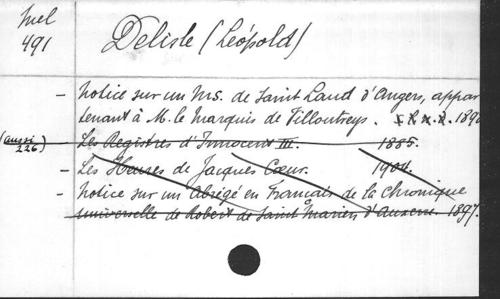 Mel
491
Delisle (Léopold)
- Notice sur un Ms. de Saint Laud d'Angers, appar
tenant à M. le Marquis de Villoutreys. 189
(aussi
226)
- Les Registres d'Innocent III. 1885.
- Les Heures de Jacques Cœur. 1904.
- Notice sur un Abrégé en Français de la Chronique
universelle de Robert de Saint Marien d'Auxerre. 1897.